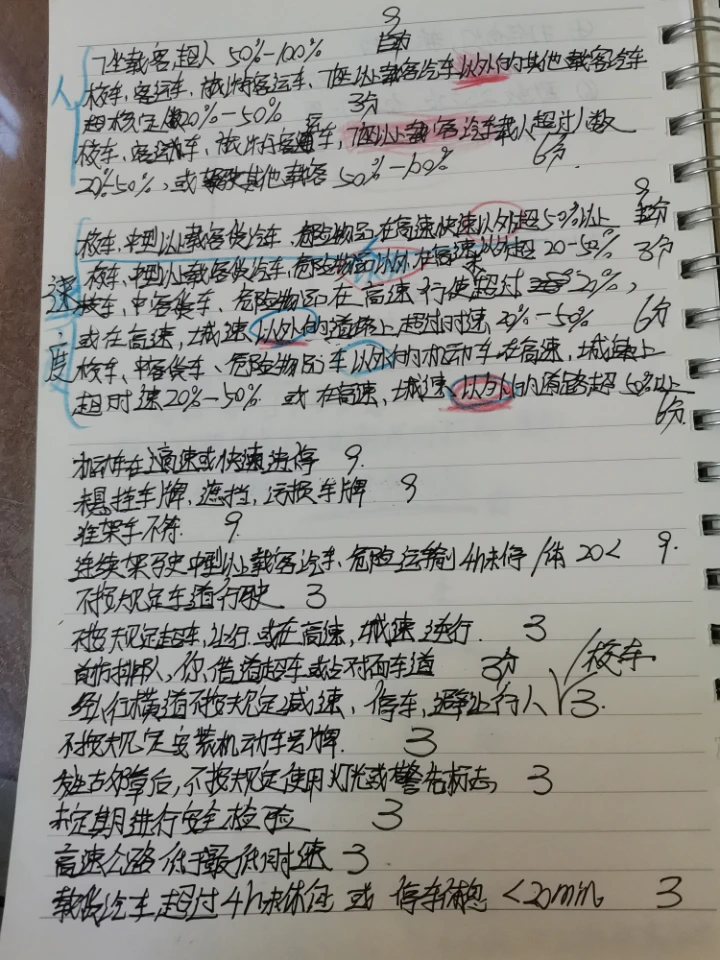 9
7坐载客,超人 50%-100% 自动
人
校车,客运车,旅游客运车,7座以上载客汽车以外的其他载客汽车
超核定人数20%-50% 3分
校车、客运车、旅游客运车,7座以上载客汽车载人超过人数 6分
20%-50%,或驾驶其他载客 50%-100%
9
校车,中型以上载客货汽车、危险物品在高速快速以外超50%以上 分
校车,中型以上载客货汽车,危险物品以外,在高速以外超 20-50% 3分
速度
校车,中客货车、危险物品在高速行使超过 20%,
或在高速,城速以外的道路上超过时速 20%-50% 6分
校车、中客货车、危险物品车以外的机动车在高速,城速上
超时速20%-50% 或在高速,城速以外的道路超50%以上
6分
机动车在高速或快速违停 9.
未悬挂车牌,遮挡,污损车牌 9
准架车不符. 9.
连续架驾史中型以上载客汽车、危险运输 4h未停/休 20< 9.
不按规定车道行驶 3
不按规定超车,让行.或在高速,城速逆行. 3
前方排队人,你,借道超车或占对面车道 3分 /校车
经人行横道不按规定减速,停车,避让行人 3.
不按规定安装机动车号牌. 3
发生古邹章后,不按规定使用灯光或警告标志 3
未定期进行安全检验 3
高速公路低于最低时速 3
载货汽车超过4h未休息 或 停车休息 <20min 3